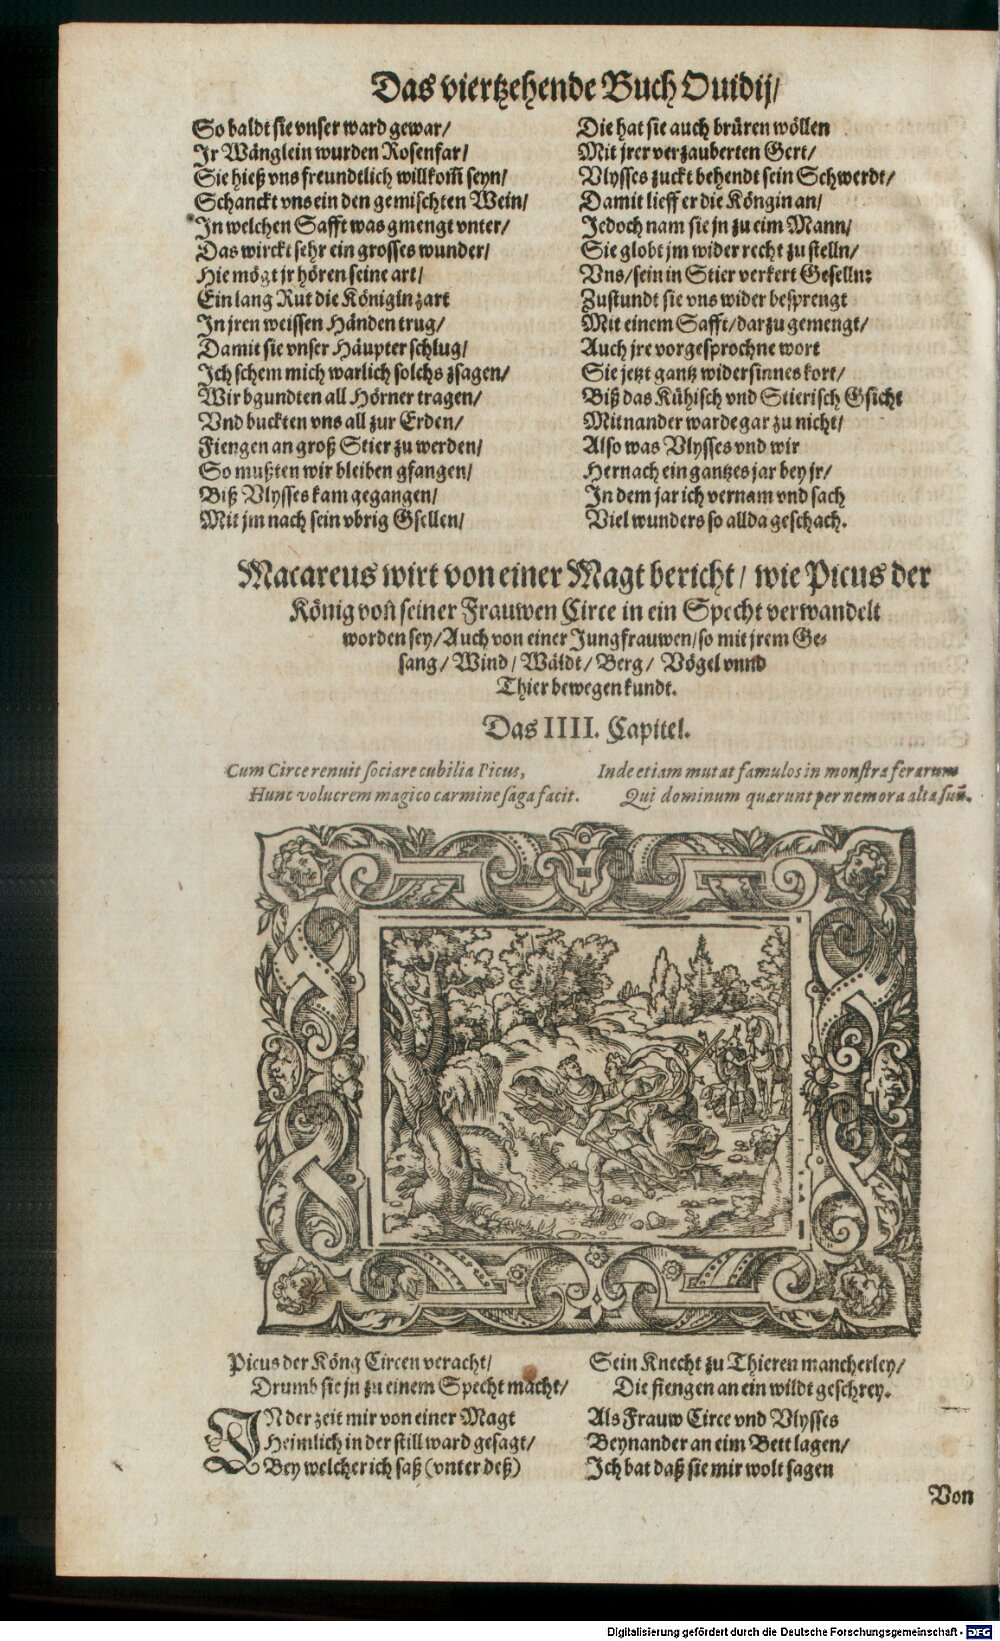 Das viertzehende Buch Ouidij/
So baldt sie vnser ward gewar/
Jr Wänglein wurden Rosenfar/
Sie hieß vns freundtlich willkom̃ seyn/
Schanckt vns ein den gemischten Wein/
Jn welchen Safft was gmengt vnter/
Das wirckt sehr ein grosses wunder/
Hie mögt jr hören seine art/
Ein lang Rut die Königin zart
Jn jren weissen Händen trug/
Damit sie vnser Häupter schlug/
Jch schem mich warlich solchs zsagen/
Wir bgundten all Hörner tragen/
Vnd buckten vns all zur Erden/
Fiengen an groß Stier zu werden/
So mußten wir bleiben gfangen/
Biß Vlysses kam gegangen/
Mit jm nach sein vbrig Gsellen/
Die hat sie auch brüren wöllen
Mit jrer verzauberten Gert/
Vlysses zuckt behendt sein Schwerdt/
Damit lieff er die Köngin an/
Jedoch nam sie jn zu eim Mann/
Sie globt jm wider recht zu stelln/
Vns/sein in Stier verkert Geselln:
Zustundt sie vns wider besprengt
Mit einem Safft/darzu gemengt/
Auch jre vorgesprochne wort
Sie jetzt gantz widersinnes kort/
Biß das Kühisch vnd Stierisch Gsicht
Mitnander warde gar zu nicht/
Also was Vlysses vnd wir
Hernach ein gantzes jar bey jr/
Jn dem jar ich vernam vnd sach
Viel wunders so allda geschach.
Macareus wirt von einer Magt bericht/ wie Picus der
König von seiner Frauwen Circe in ein Specht verwandelt
worden sey/Auch von einer Jungfrauwen/so mit jrem Ge-
sang/ Wind/ Wäldt/ Berg/ Vögel vnnd
Thier bewegen kundt.
Das IIII. Capitel.
Cum Circe renuit sociare cubilia Picus,
Hunc volucrem magico carmine saga facit.
Inde etiam mutat famulos in monstra ferarum
Qui dominum quærunt per nemora alta suũ.
Picus der Köng Circen veracht/
Drumb sie jn zu einem Specht macht/
Sein Knecht zu Thieren mancherley/
Die fiengen an ein wildt geschrey.
JN der zeit mir von einer Magt
Heimlich in der still ward gesagt/
Bey welcher ich saß (vnter deß)
Als Frauw Circe vnd Vlysses
Beynander an eim Bett lagen/
Jch bat daß sie mir wolt sagen
Von
Digitalisierung gefördert durch die Deutsche Forschungsgemeinschaft - DFG